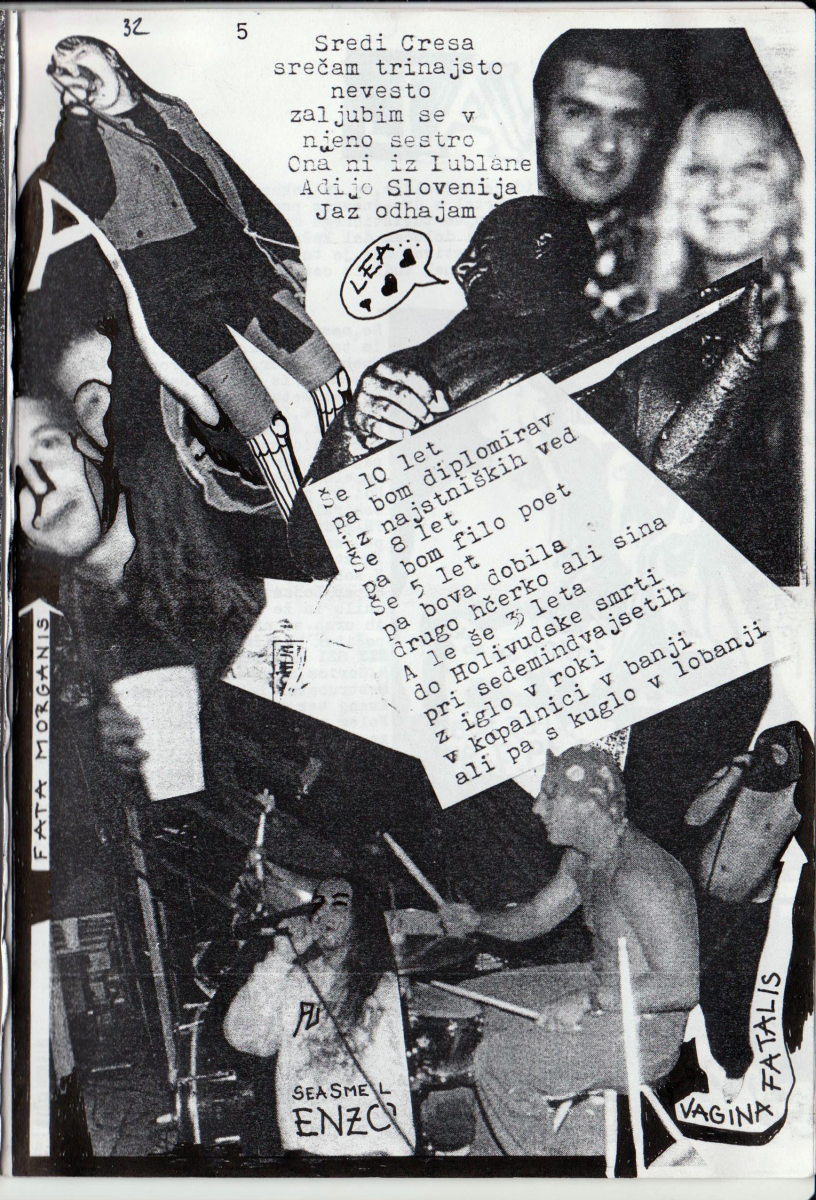 32
5
Sredi Cresa
srečam trinajsto
nevesto
zaljubim se v
njeno sestro
Ona ni iz Iublane
Adijo Slovenija
Jaz odhajam
A
LEA...
Še 10 let
pa bom diplomirav
iz najstniških ved
Še 8 let
pa bom filo poet
Še 5 let
pa bova dobila
drugo hčerko ali sina
A le še 3 leta
do Holivudske smrti
pri sedemindvajsetih
z iglo v roki
v kopalnici v banji
ali pa s kuglo v lobanji
FATA MORGANIS
SEA SMELL
ENZO
VAGINA FATALIS